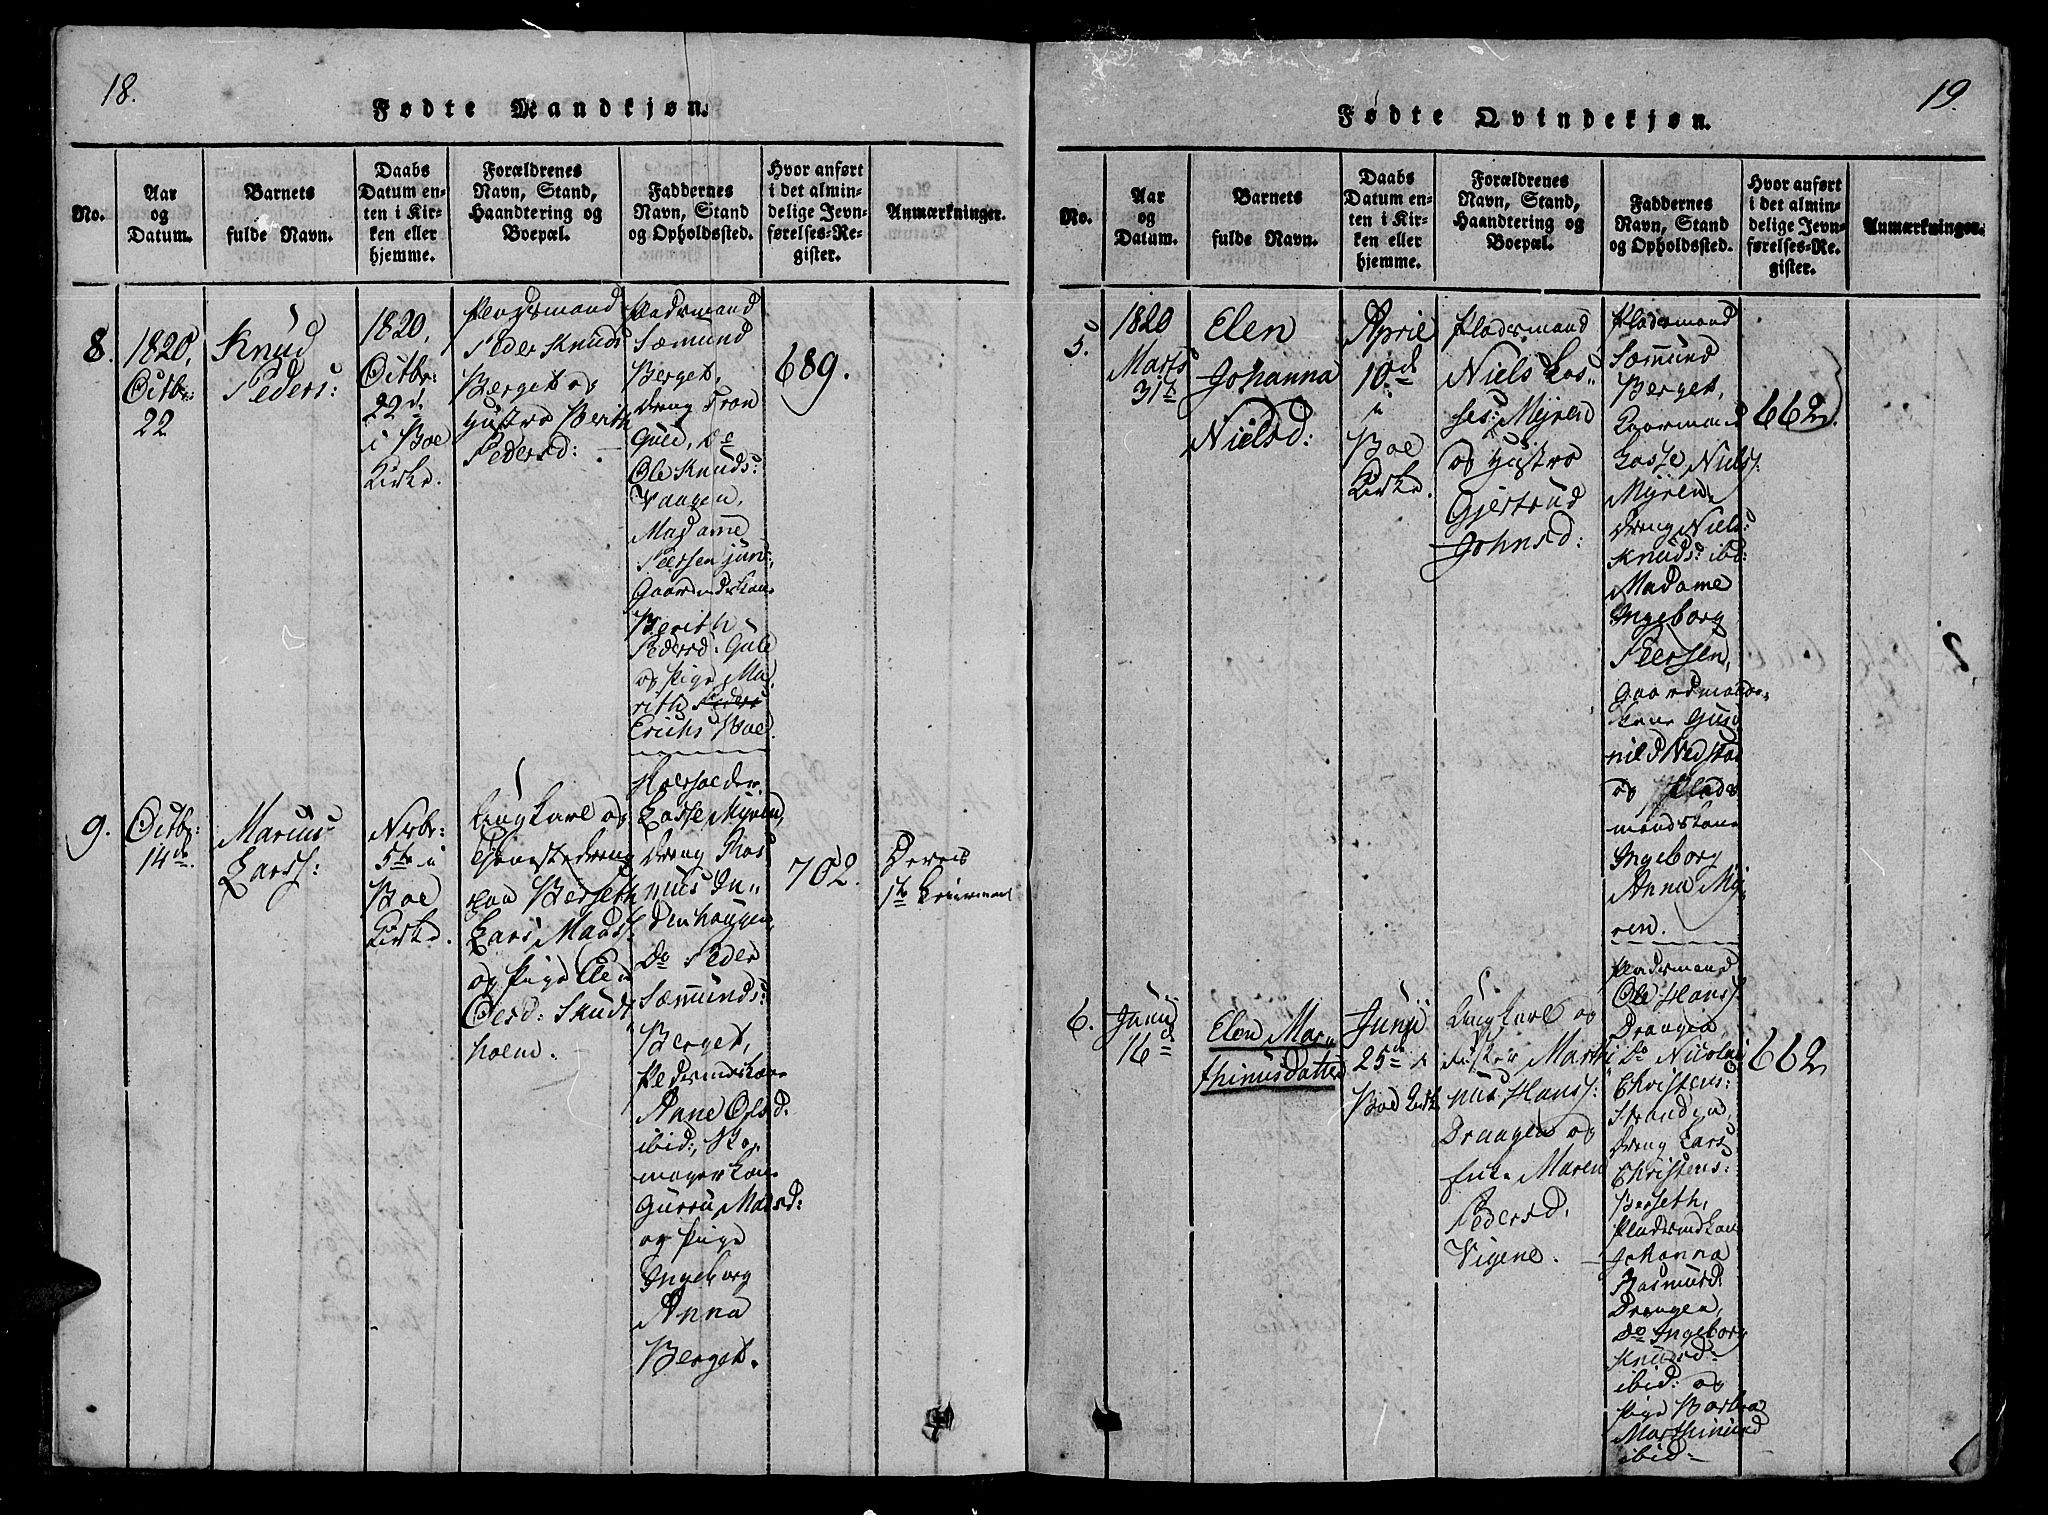 18.
Fødte Mandkjøn.
No.
Aar
og
Datum.
Barnets
fulde Navn.
Daabs
Datum en-
ten i Kir-
ken eller
hjemme.
Forældrenes
Navn, Stand,
Haandtering og
Boepæl.
Faddernes
Navn, Stand
og Opholdssted.
Hvor anført
i det almin-
delige Jevn-
førelses-Re-
gister.
Anmærkninger.
8.
1820,
Octbr:
22
Knud
Peders:
1820,
Octbr:
22d
i Boe
Kirke.
Peder Knuds
Berget og
Hustro Berith
Pedersd:
Pladsmand
Sæmund
Berget,
Dreng Tron
Gule, do
Ole Knuds:
Vaagen,
Madame
Peersen
Gaardmdskone
Berith
Pedersd: Gule
og Pige Ma,
rith Peders
Erichs Boe.
689.
9.
Octbr:
14de
Marius
Larss:
Novbr:
5te i
Boe
Kirke.
Ungkarl og
Tjenestedreng
paa Berseth
Lars Madss:
og Pige Elen
Olesd: Skuds
holm.
Lasse Myren,
Dreng Ras
mus In,,
denhaugen,
Do Peder
Sæmunds:
Berget,
Pladsmdskone
Anne Olsd.
ibid:,
Gurru Madsd:
og Pige
Ingeborg
Anna
Berget.
702.
Deres
1te Leiermaal
19.
Fødte Qvindekjøn.
No.
Aar
og
Datum.
Barnets
fulde Navn.
Daabs
Datum en-
ten i Kir-
ken eller
hjemme.
Forældrenes
Navn, Stand,
Haandtering og
Boepæl.
Faddernes
Navn, Stand
og Opholdssted.
Hvor anført
i det almin-
delige Jevn-
førelses-Re-
gister.
Anmærkninger.
5.
1820
Marts
31te
Elen
Johanna
Nielsd:
April
10.d
i
Boe
Kirke.
Pladsmand
Niels Las,,
ses: Myren
og Hustro
Gjertrud
Johnsd:
Pladsmand
Sæmund
Berget,
Gaarmand
Lasse Niels:
Myren,
Dreng Niels:
Knuds: ibd:
Madame
Ingeborg
Peersen,
Gaardmands,
kone Gus
nild Nedstad
og Plads
mandskone
Ingeborg
Anna My,
ren.
662.
6.
Junii
16d
Elen Mar,,
thinusdatter
Junii
25de i
Boe Kirke
Ungkarl og
Fisker Marthi
nus Hanss:
Draagen og
Enke Maren
Pedersd.
Vigene.
Pladsmand
Ole Hanss:
Draagen
Do Nicolai
Christens:
Stranden,
Dreng Lars
Christens:
Berseth,
Pladsmdkone
Johanna
Rasmusd:
Draagen,
Do Ingeborg
Knudsd:
ibid: og
Pige Barbra
Marthinusd
ibid:
662